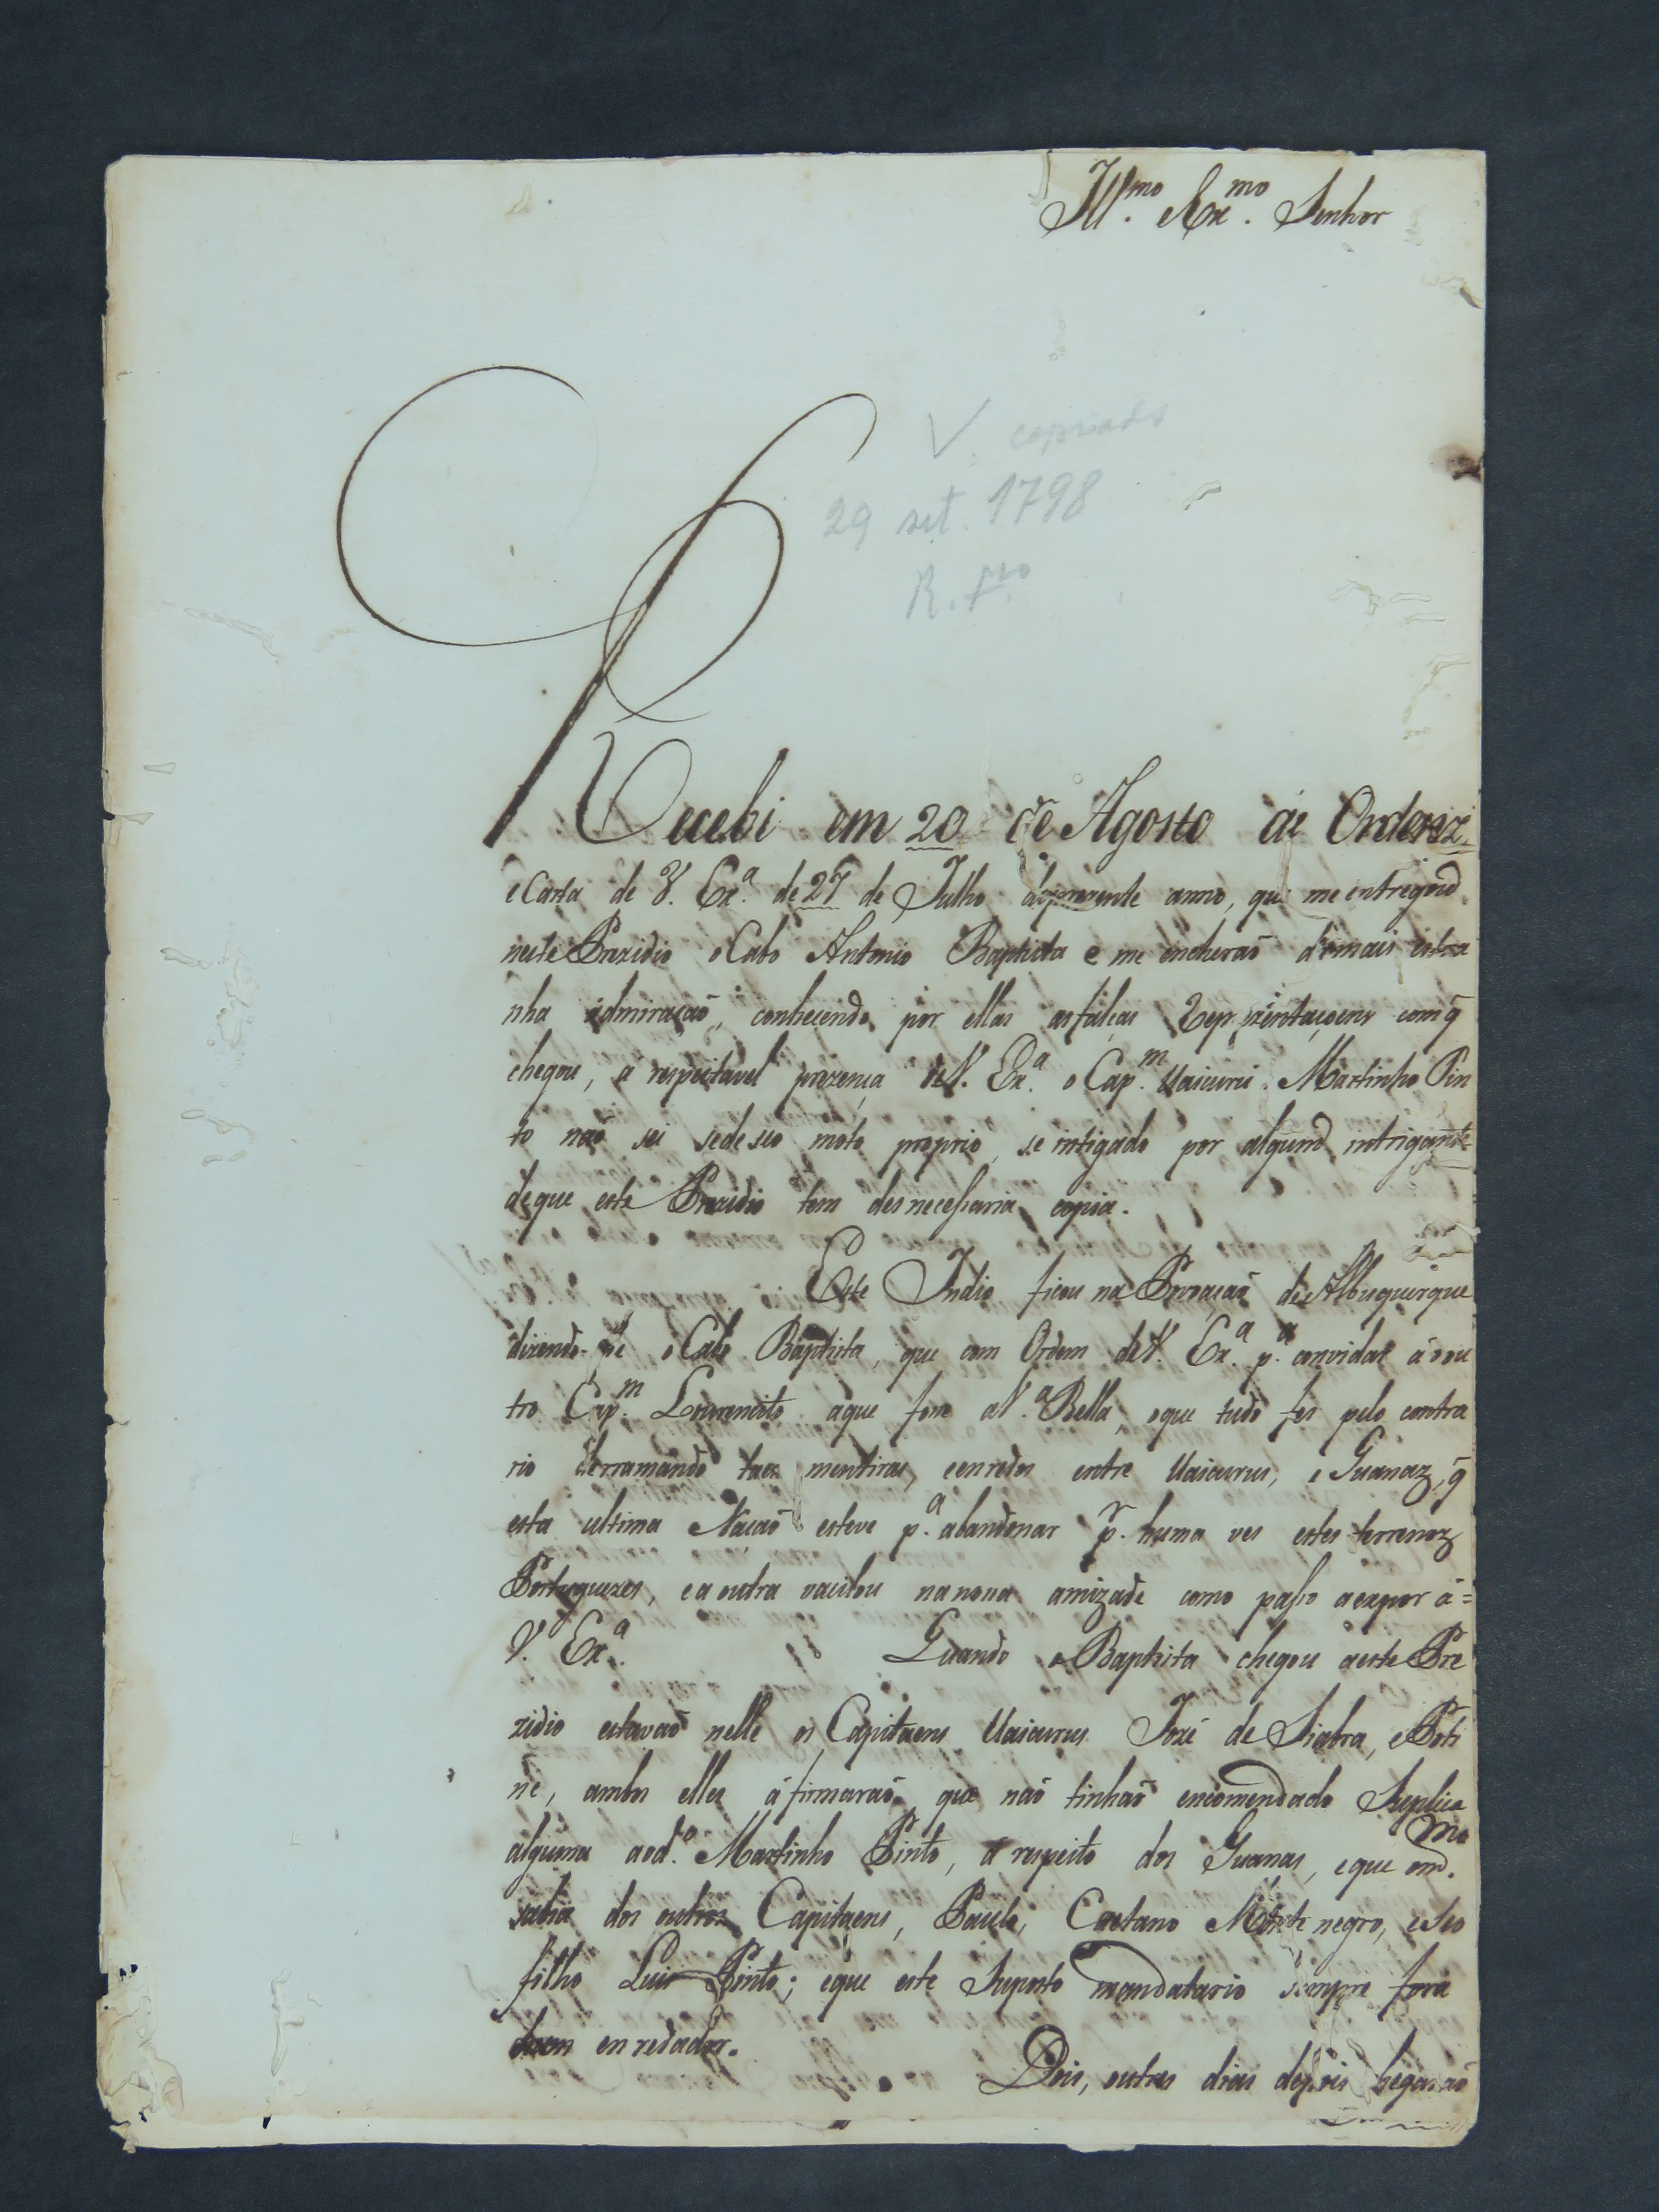 Ill.mo e Ex.mo Senhor
V. copiado
29 set. 1798
R. F.ro
Recebi em 20 de Agosto as Ordens,
e Carta de V. Ex.ª de 27 de Julho do prezente anno, que me entregou
neste Prezidio o Cabo Antonio Baptista e me encherão da mais estra
nha admiração, conhecendo por ellas as falças Reprezentaçoens com q̃
chegou, á respeitavel prezença de V. Ex.ª o Cap.m Uaicurú Martinho Pin
to não sei se de seo moto proprio, se intigado por algum intrigante
de que este Prezidio tem desnecessaria copia.
Este Indio ficou na Povoação de Albuquerque
dizendo o Cabo Baptista, que com Ordem de V. Ex.ª p.ª convidar á oou
tro Cap.m Lourencito aque fosse a V.ª Bella, oque tudo fes pelo contra
rio derramando taes mentiras, e enredos entre Uaicurus, e Guanaz, q̃
esta ultima Nação esteve p.ª abandonar p.r huma ves estes terrenoz
Portuguezes, e a outra vacilou na nova amizade como passo a expor á=
V. Ex.ª Quando o Baptista chegou a este Pre
zidio estavão nelle os Capitaens Uaicurus Jozé de Siabra, e Bati
ne, ambos elles áfirmarão que não tinhão encomendado Suplica
alguma ao d.º Martinho Pinto, a respeito dos Guanas, e que o m.mo
sabia dos outros Capitaens, Paulo, Caetano Monte negro, e seo
filho Luis Pinto; e que este Suposto mandatario sempre fora
bom enredador.
Dois, outros dias depois chegarão